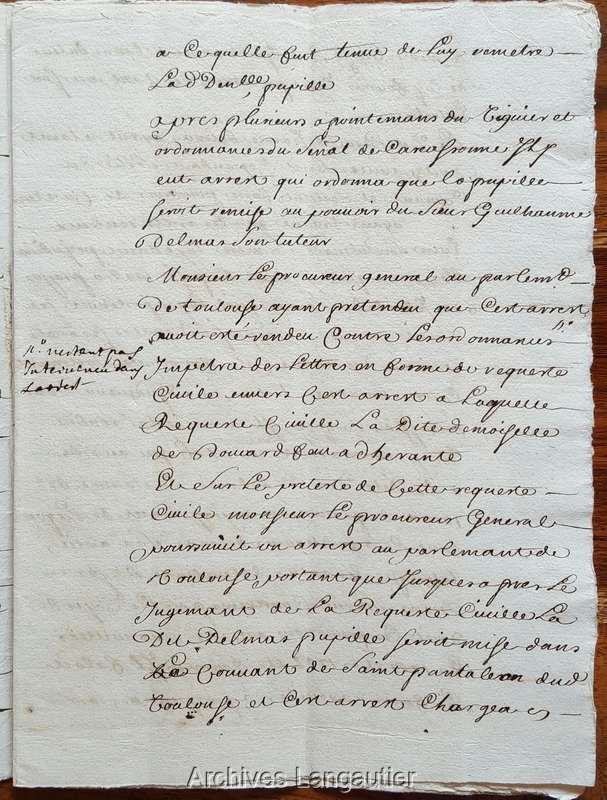 a Ce quelle fut tenue de luy remetre
La d^e Den^lle pupille
apres plusieurs apointemans du viguier et
ordonnances du Sen^al de Carcassonne Il y
eut arrest qui ordonna que la pupille
seroit remise au pouvoir du sieur Guilhaume
Delmas son tuteur
Monsieur Le procureur general au parlem^t
de toulouse ayant pretendeu que Cert arrest
avoit esté rendeu Contre Les ordonnances
n'estant pas
Interveneu dans
Impetra des Lettres en forme de requeste
Civile envers Cert arrest a Laquelle
Requeste Civille La Dite demoiselle
de Douard feut adherante
Et sur Le preteste de Cette requeste
Civile monsieur Le procureur General
poursuivit un arrest au parlemant de
Toulouse portant que Jusques apres Le
Jugemant de La Requeste Civille La
Dite Delmas pupille seroit mise dans
Le Couvant de Saint pantaleon dud
toulouse et Cert arrest Chargea
Archives Langautier